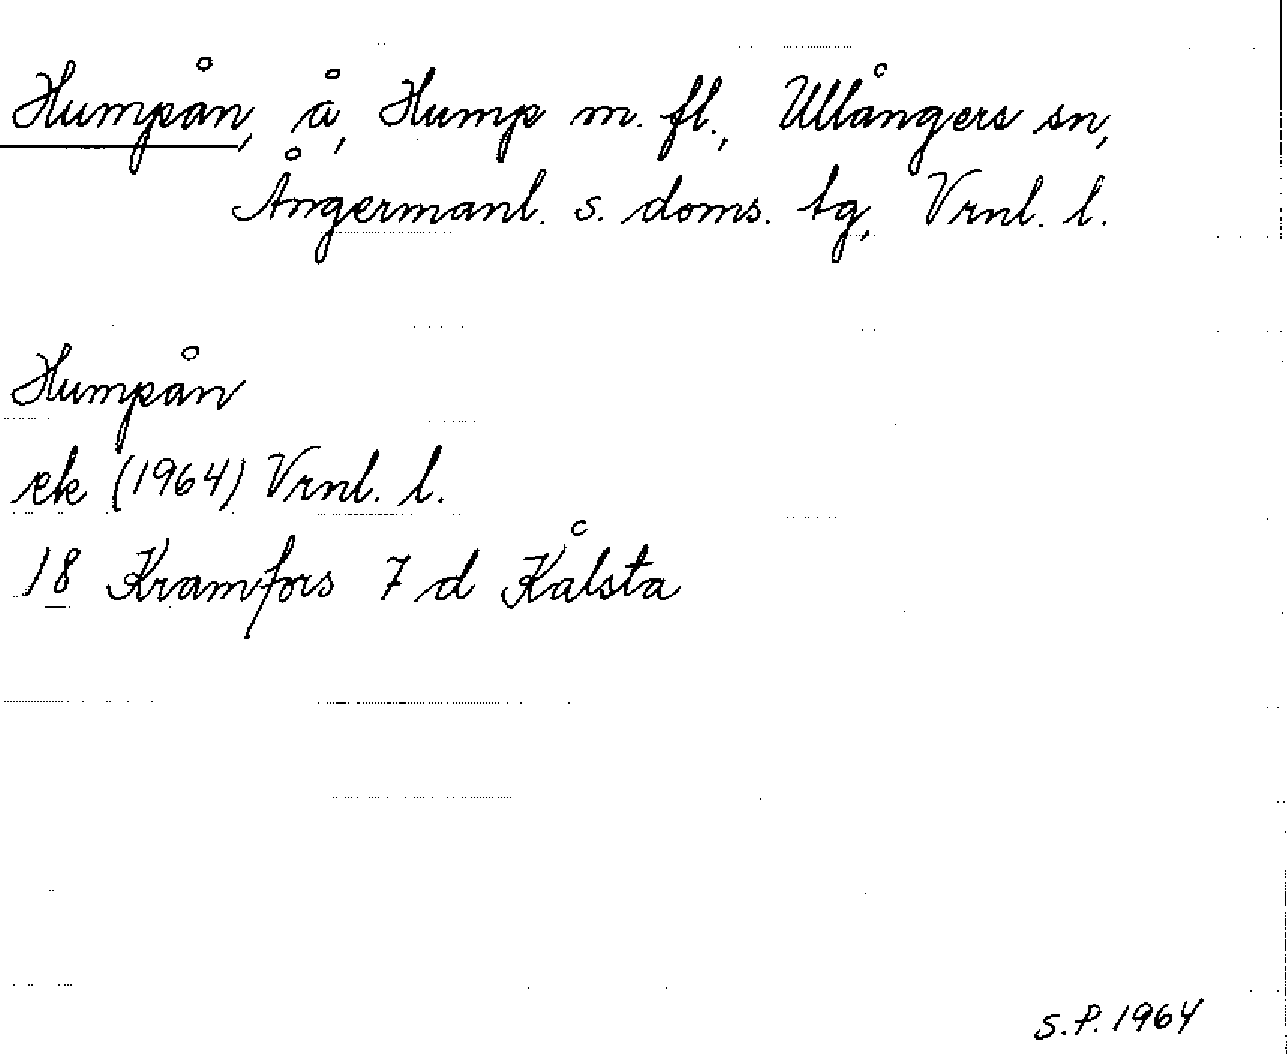 Humpån, å, Hump m. fl., Ullångers sn,
Ångermanl. s. doms. tg, Vrnl. l.
Humpån
ek (1964) Vrnl. l.
18 Kramfors 7 d Kålsta
S.P. 1964